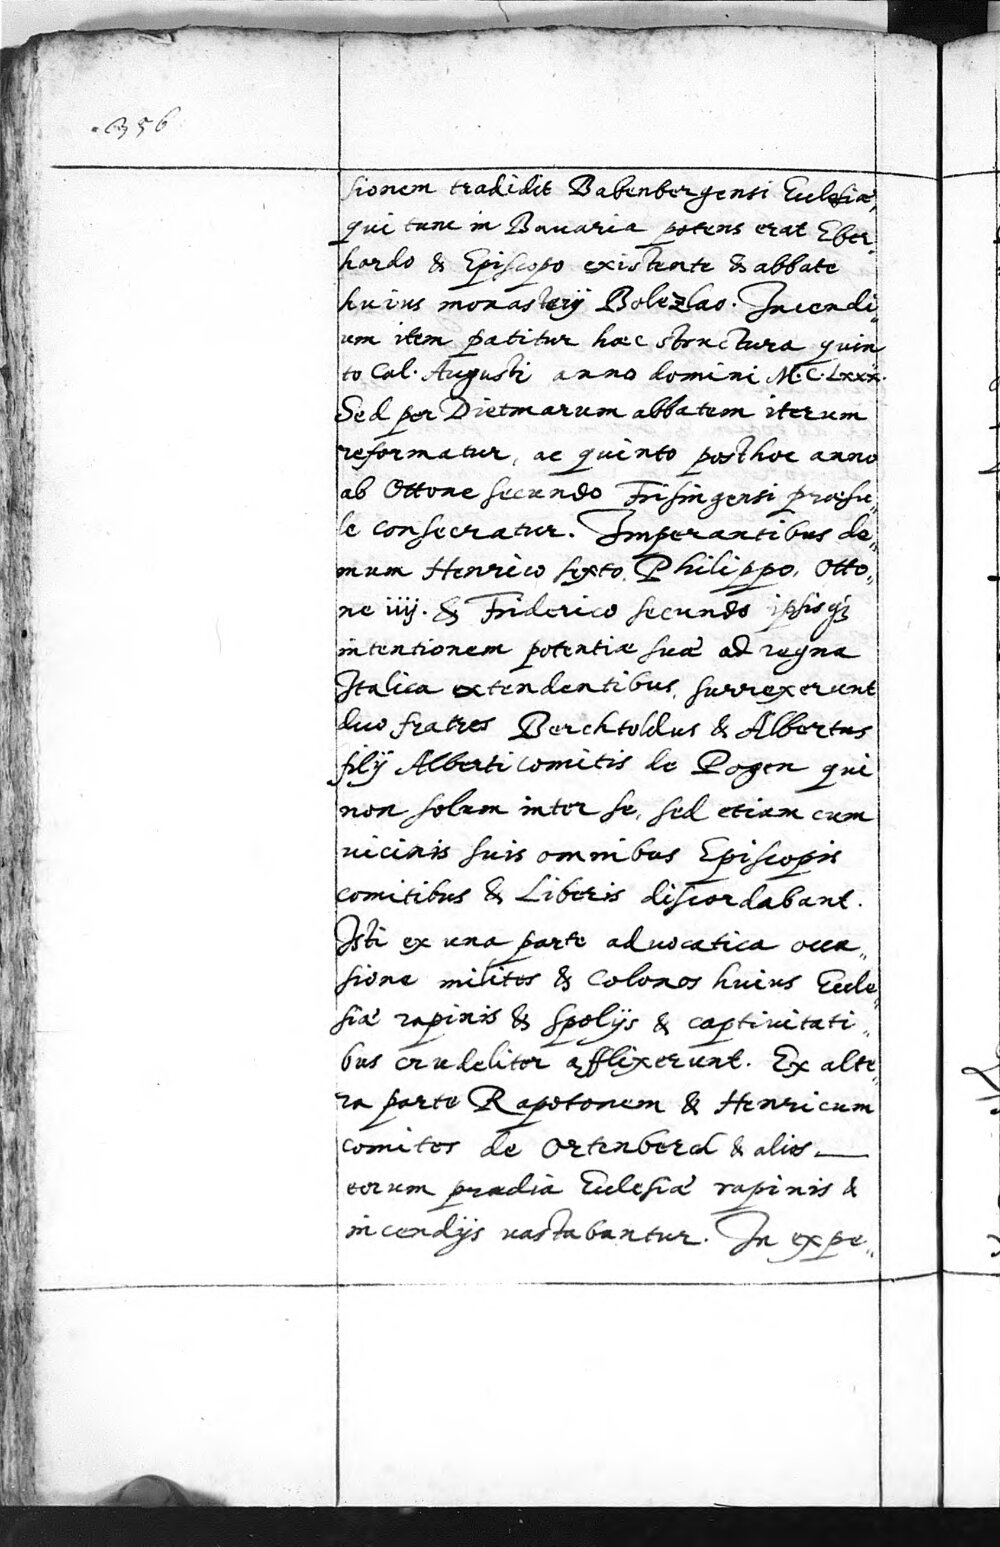 356
sionem tradidit Babenbergensi Ecclesiæ,
qui tunc in Bauaria potens erat Eber„
hardo & Episcopo existente & abbate
huius monasterij Bolezlao. Incendi„
um item patitur hæc structura quin
to Cal. Augusti anno domini M.C.Lxxx.
Sed per Dietmarum abbatem iterum
reformatur, ac quinto post hoc anno
ab Ottone secundo Frisingensi præsu„
le consecratur. Imperantibus de„
mum Henrico sexto, Philippo, Otto„
ne iiij. & Friderico secundo ipsisq₃
intentionem potentiæ suæ ad regna
Italica extendentibus, surrexerunt
duo fratres Berchtoldus & Albertus
filij Alberti comitis de Pogen qui
non solum inter se, sed etiam cum
uicinis suis omnibus Episcopis
comitibus & Liberis discordabant.
Isti ex una parte aduocatica occa„
sione milites & colonos huius Eccle„
siæ rapinis & spolijs & captiuitati„
bus crudeliter afflixerunt. Ex alte„
ra parte Rapotonem & Henricum
comites de Ortenberch & alios
eorum prædia Ecclesiæ rapinis &
incendijs uastabantur. In expe„